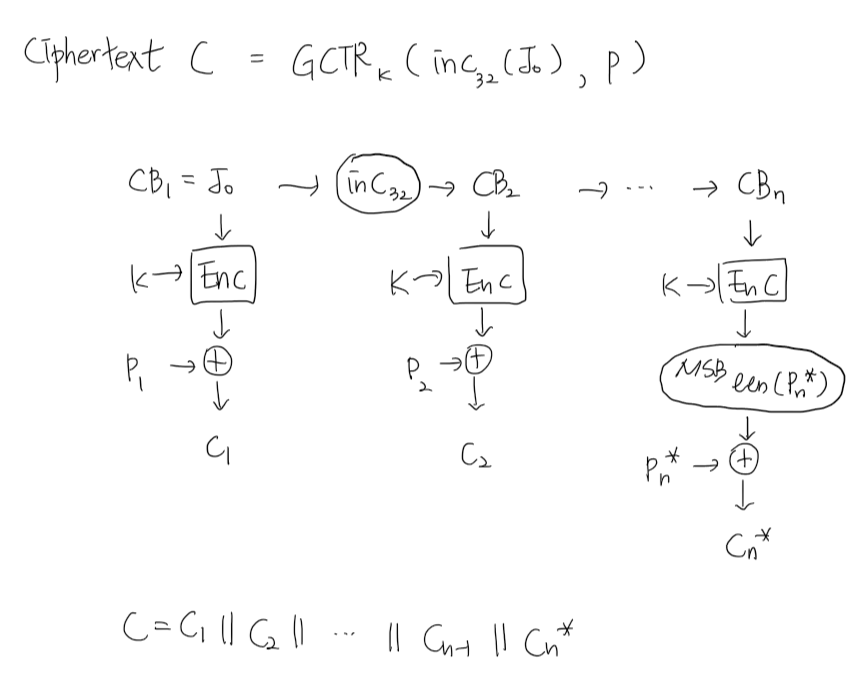 Ciphertext C = GCTR_K ( inc_32 (J_0) , P )
CB_1 = J_0 → inc_32 → CB_2 → ... → CB_n
K → Enc K → Enc K → Enc
MSB len(P_n*)
P_1 → ⊕ P_2 → ⊕
C_1 C_2 P_n* → ⊕
C_n*
C = C_1 || C_2 || ... || C_n-1 || C_n*